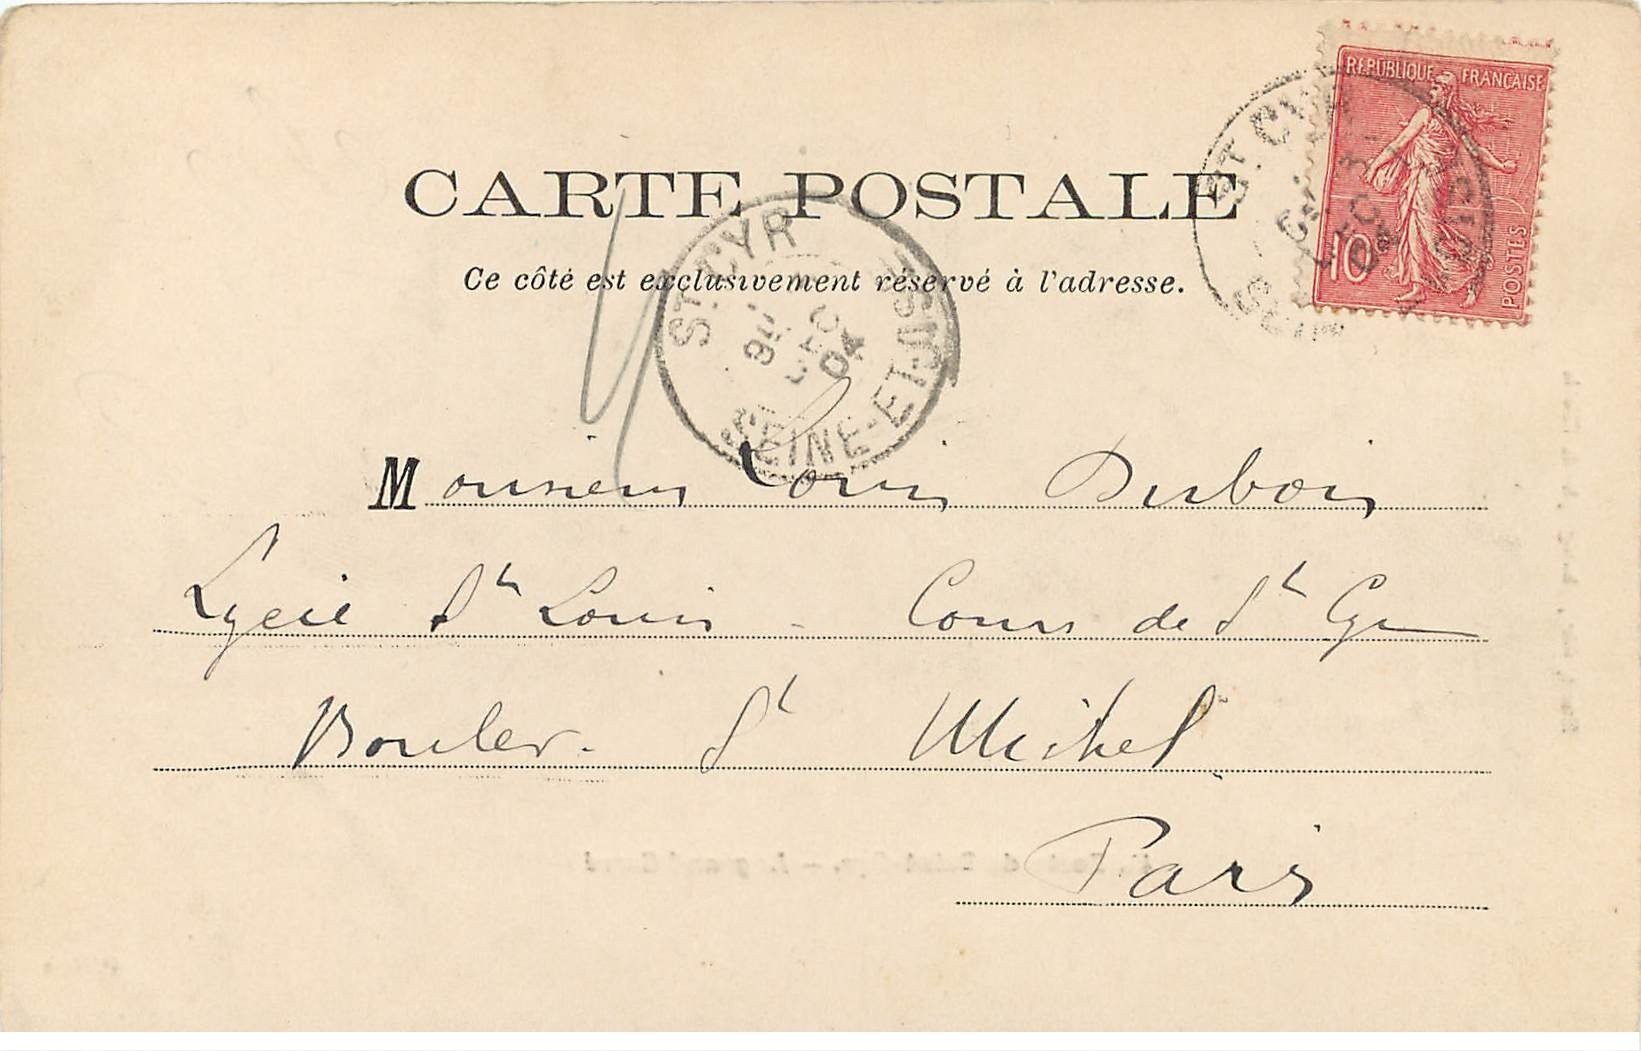 RÉPUBLIQUE FRANÇAISE
10
POSTES
ST. CYR
DEC
04
CARTE POSTALE
Ce côté est exclusivement réservé à l'adresse.
ST. CYR
DEC
04
SEINE-ET-OISE
Monsieur Louis Dubois
Lycée St Louis - Cours de St Cyr
Boulev. St Michel
Paris